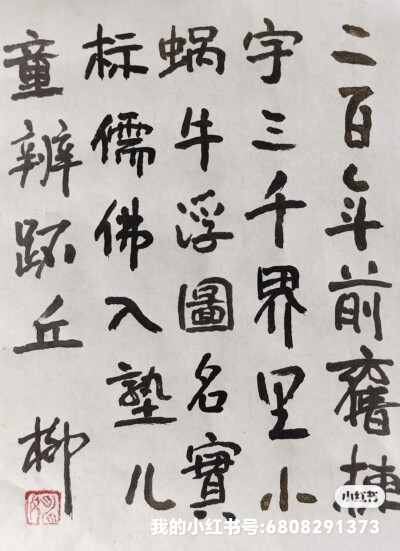 二百年前舊棟
宇三千界里小
蜗牛浮圖名實
标儒佛入塾儿
童辨跡丘 柳
小红书
我的小红书号:6808291373